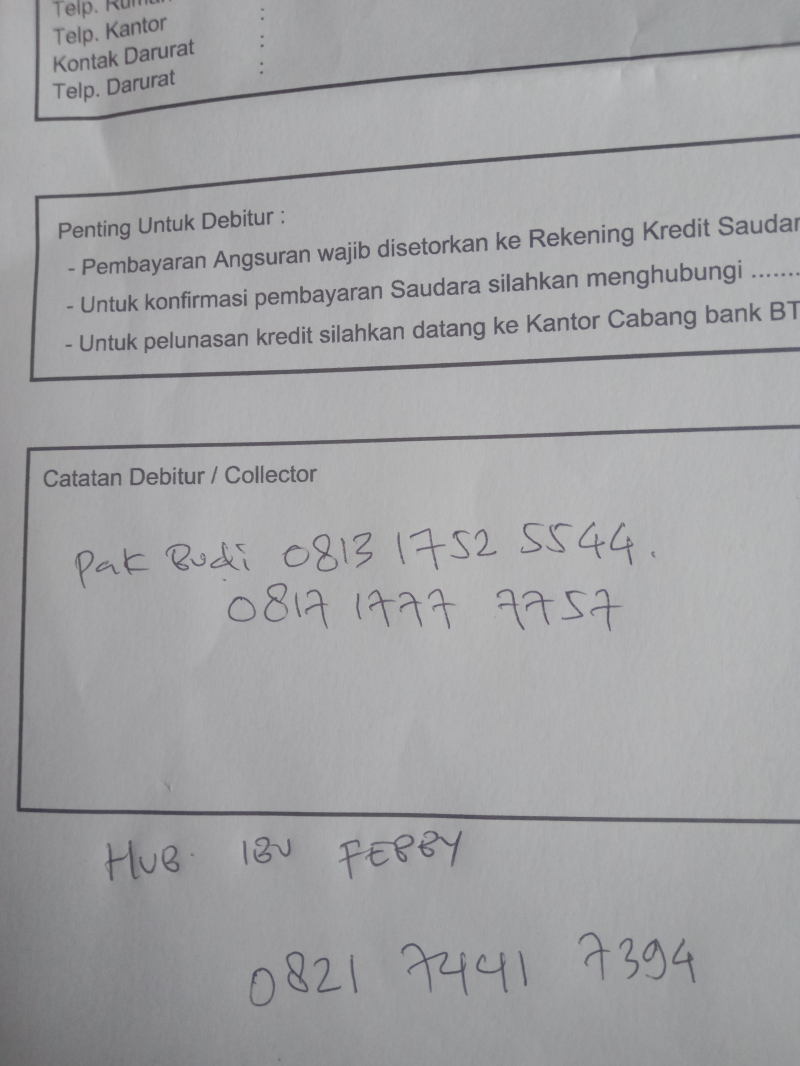 Telp. Rumah :
Telp. Kantor :
Kontak Darurat :
Telp. Darurat
Penting Untuk Debitur :
- Pembayaran Angsuran wajib disetorkan ke Rekening Kredit Saudar
- Untuk konfirmasi pembayaran Saudara silahkan menghubungi ........
- Untuk pelunasan kredit silahkan datang ke Kantor Cabang bank BT
Catatan Debitur / Collector
Pak Budi 0813 1752 5544.
0817 1777 7757
HUB. IBU FEBBY
0821 7441 7394